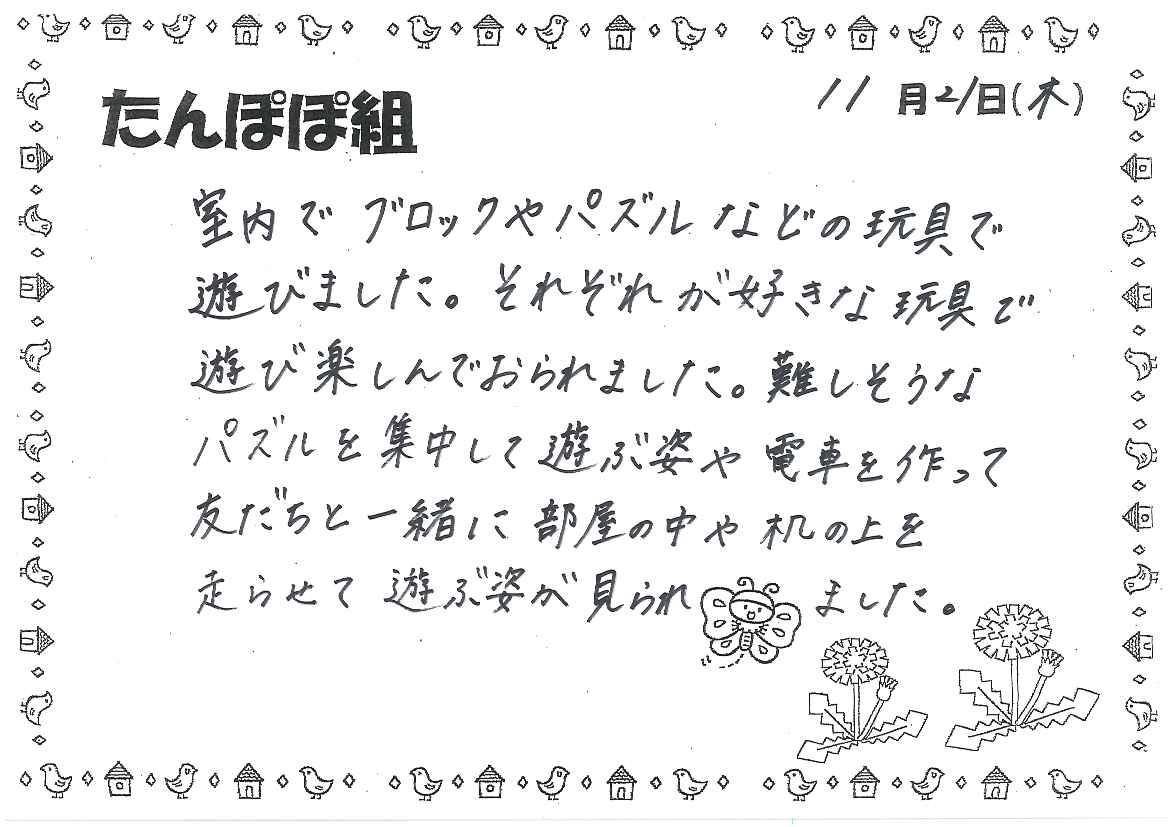 たんぽぽ組
11月21日(木)
室内でブロックやパズルなどの玩具で
遊びました。それぞれが好きな玩具で
遊び楽しんでおられました。難しそうな
パズルを集中して遊ぶ姿や電車を作って
友だちと一緒に部屋の中や机の上を
走らせて遊ぶ姿が見られました。